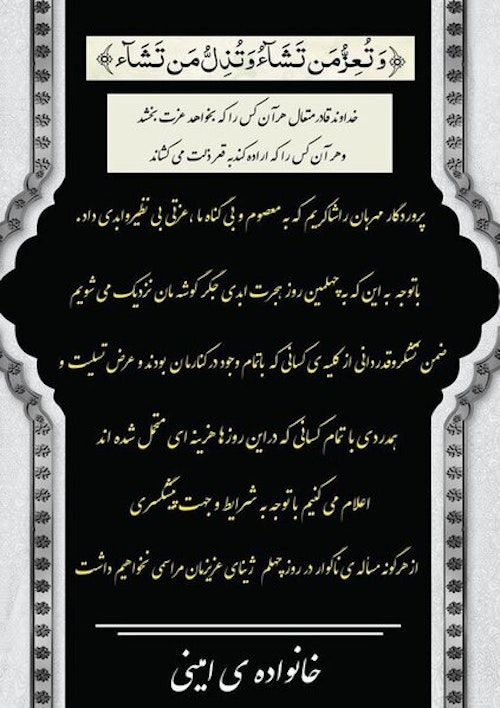 ﴿وَ تُعِزُّ مَن تَشَآءُ وَ تُذِلُّ مَن تَشَآء﴾
خداوند قادر متعال هر آن کس را که بخواهد عزت بخشد
و هر آن کس را که اراده کند به قعر ذلت می کشاند
پروردگار مهربان را شاکریم که به معصوم و بی گناه ما ، عزتی بی نظیر و ابدی داد.
با توجه به این که به چهلمین روز هجرت ابدی جگر گوشه مان نزدیک می شویم
ضمن تشکر و قدر دانی از کلیه ی کسانی که با تمام وجود در کنارمان بودند و عرض تسلیت و
همدردی با تمام کسانی که در این روزها هزینه ای متحمل شده اند
اعلام می کنیم با توجه به شرایط و جهت پیشگیری
از هرگونه مسأله ی ناگوار در روز چهلم ژینای عزیزمان مراسمی نخواهیم داشت
خانواده ی امینی